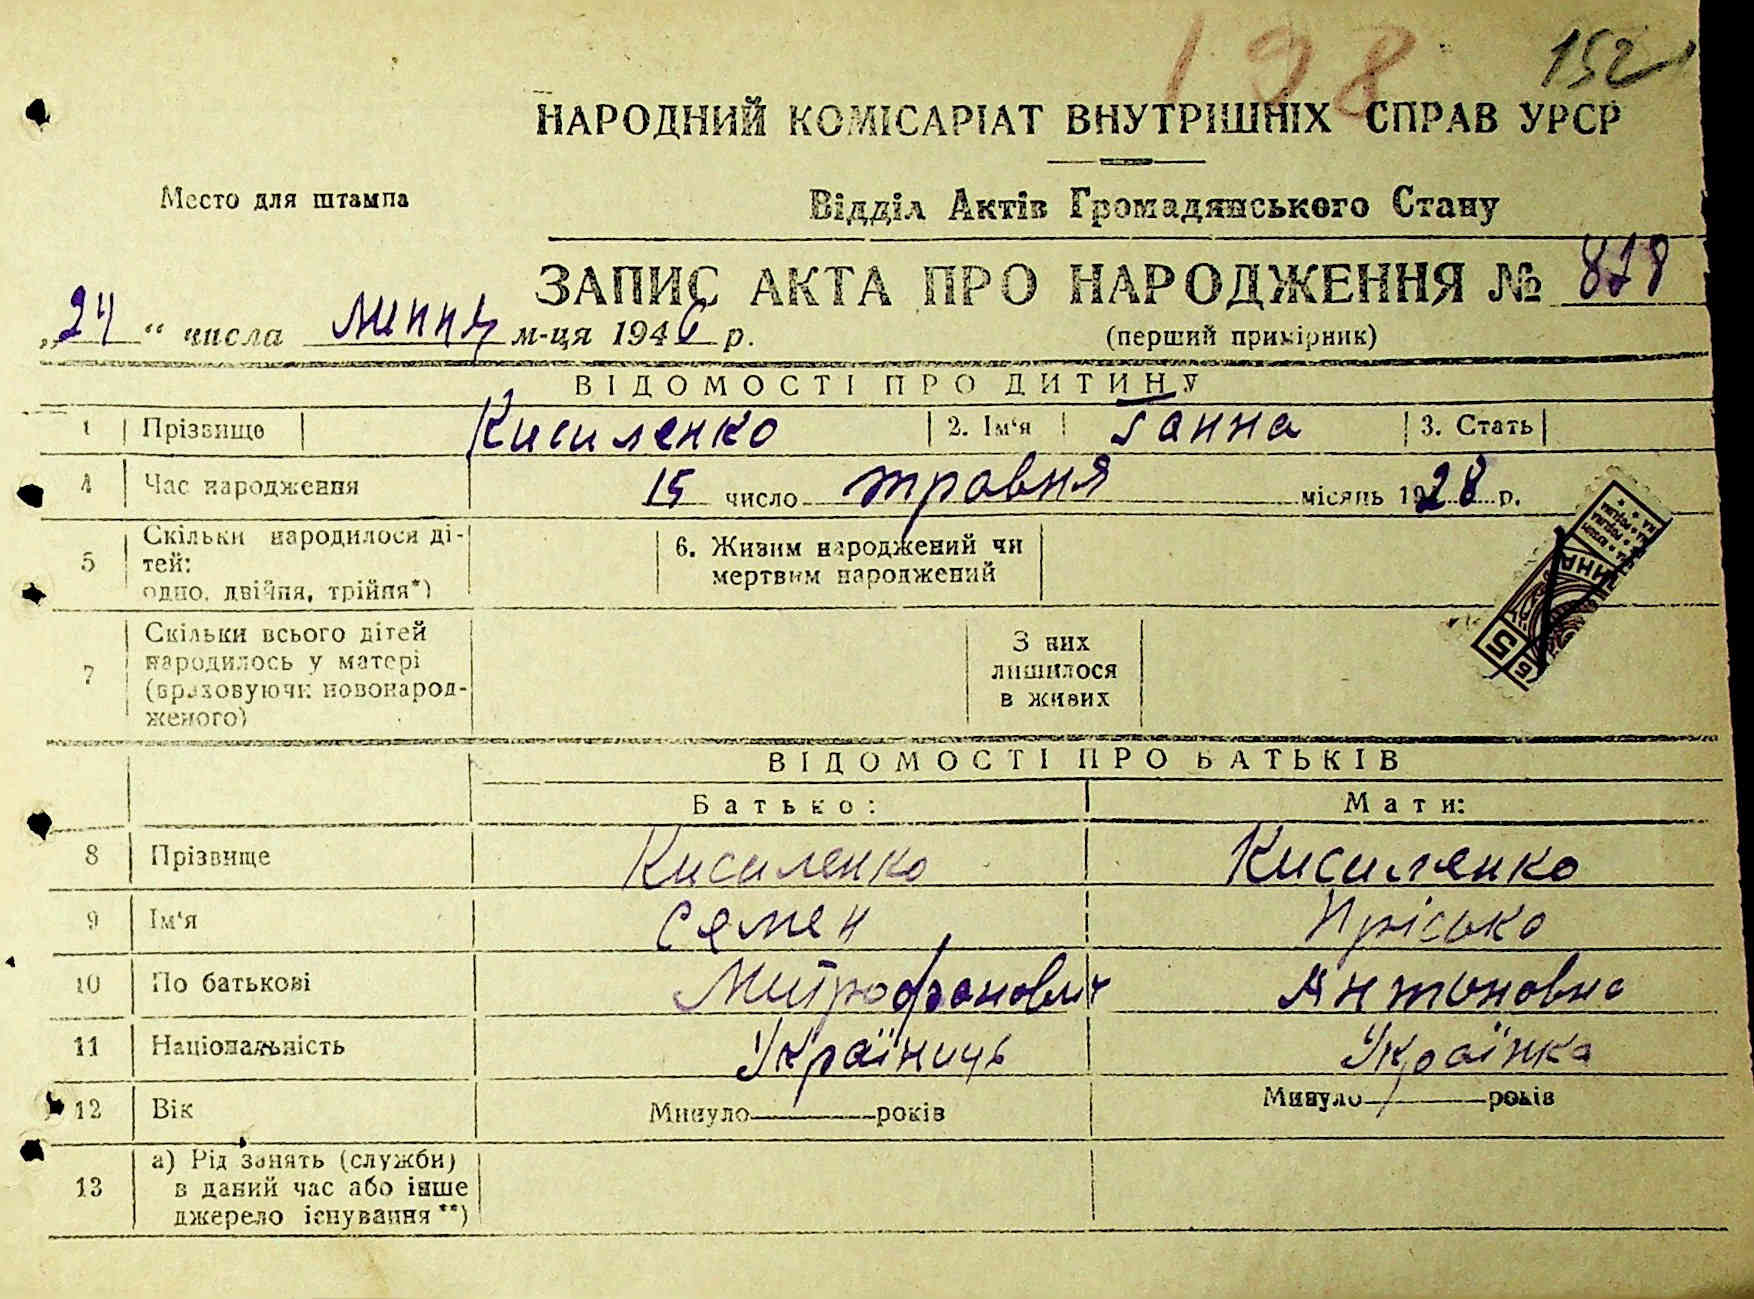 198 152
НАРОДНИЙ КОМІСАРІАТ ВНУТРІШНІХ СПРАВ УРСР
Место для штампа
Відділ Актів Громадянського Стану
ЗАПИС АКТА ПРО НАРОДЖЕННЯ № 878
„24“ числа липня м-ця 1946 р.
(перший примірник)
ВІДОМОСТІ ПРО ДИТИНУ
1 Прізвище Кисиленко 2. Ім‘я Ганна 3. Стать
4 Час народження 15 число травня місяць 1928 р.
5 Скільки народилося ді-
тей:
одно, двійня, трійня*)
6. Живим народжений чи
мертвим народжений
7 Скільки всього дітей
народилось у матері
(враховуючи новонарод-
женого)
З них
лишилося
в живих
5
ВІДОМОСТІ ПРО БАТЬКІВ
Батько: Мати:
8 Прізвище Кисиленко Кисиленко
9 Ім‘я Семен Прісько
10 По батькові Митрофанович Антоновна
11 Національність Україниць Українка
12 Вік Минуло років Минуло років
13 а) Рід занять (служби)
в даний час або інше
джерело існування**)